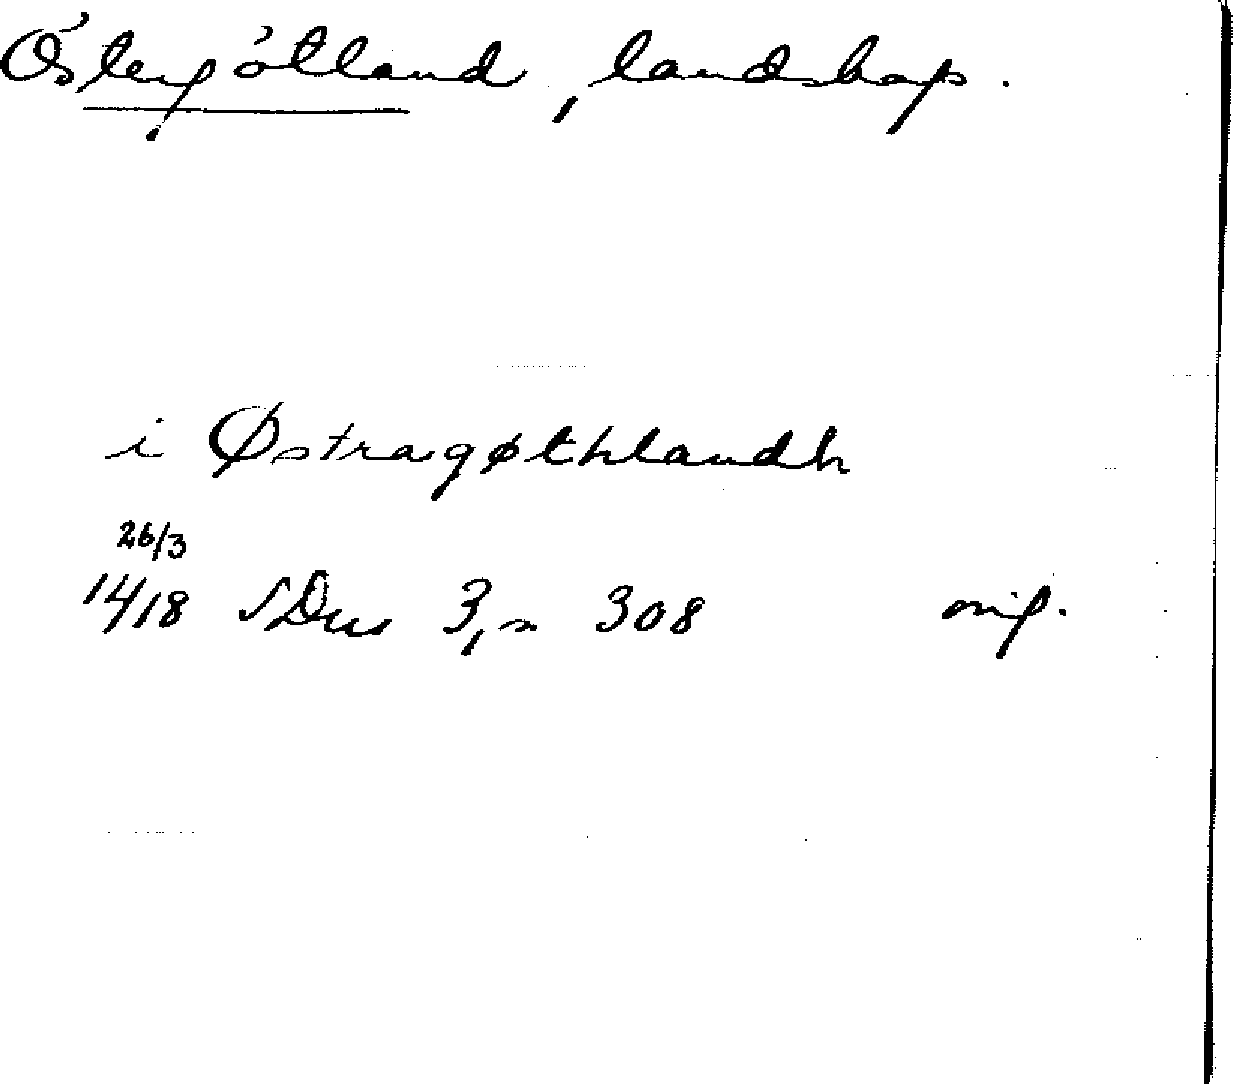 Östergötland, landskap.
i Østragøthlandh
26/3
1418 SDns 3, s 308 orig.